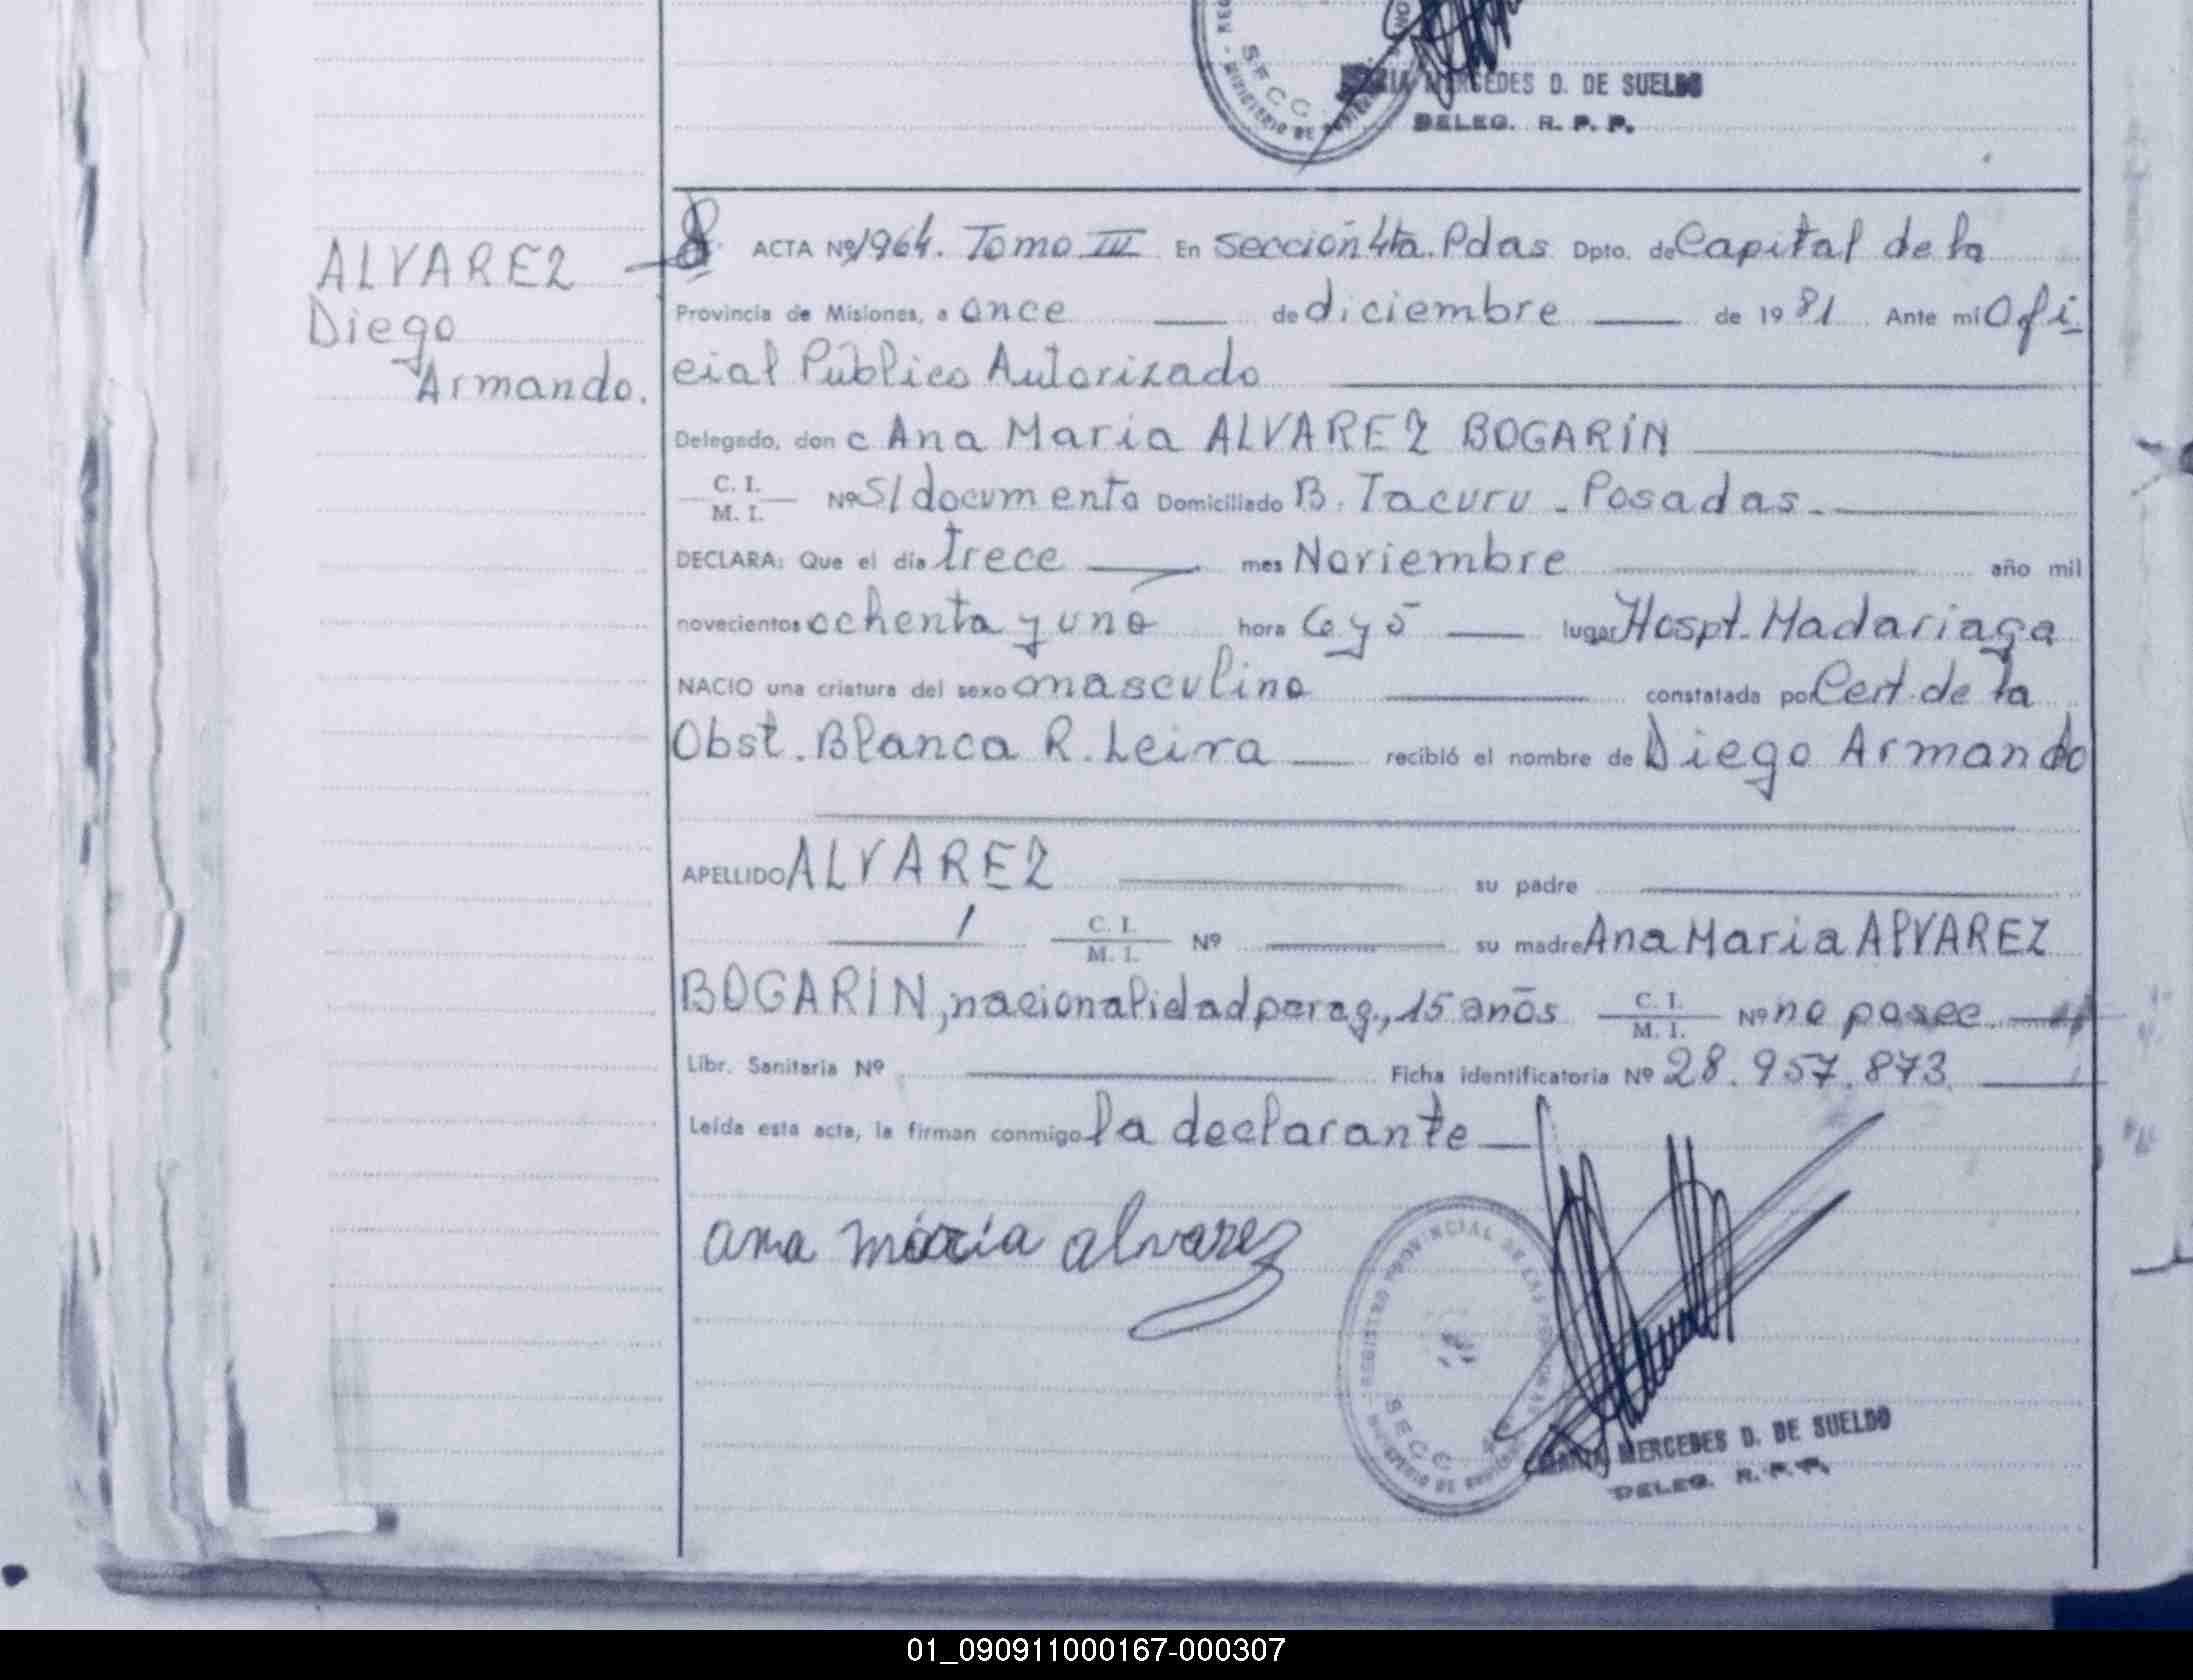 MARIA MERCEDES D. DE SUELDO
DELEG. R. P. P.
ALVAREZ
Diego
Armando.
ACTA Nº 1964. Tomo III En Sección 4ta. Pdas Dpto. de Capital de la
Provincia de Misiones, a once de diciembre de 1981 Ante mí Ofi
cial Público Autorizado
Delegado, don c Ana Maria ALVAREZ BOGARIN
C. I.
M. I. Nº S/documento Domiciliado B. Tacuru - Posadas.
DECLARA: Que el día trece mes Noviembre año mil
novecientos ochenta y uno hora 6 y 5 lugar Hospt. Madariaga
NACIO una criatura del sexo masculino constatada por Cert. de la
Obst. Blanca R. Leiva recibió el nombre de Diego Armando
APELLIDO ALVAREZ su padre
C. I.
M. I. Nº su madre Ana Maria ALVAREZ
BOGARIN, nacionalidad parag., 15 años C. I.
M. I. Nº no posee
Libr. Sanitaria Nº Ficha identificatoria Nº 28.957.873
Leída esta acta, la firman conmigo la declarante
ana maría alvarez
REGISTRO PROVINCIAL DE LAS PERSONAS
SECC.
MINISTERIO DE
MARIA MERCEDES D. DE SUELDO
DELEG. R. P. P.
01_090911000167-000307